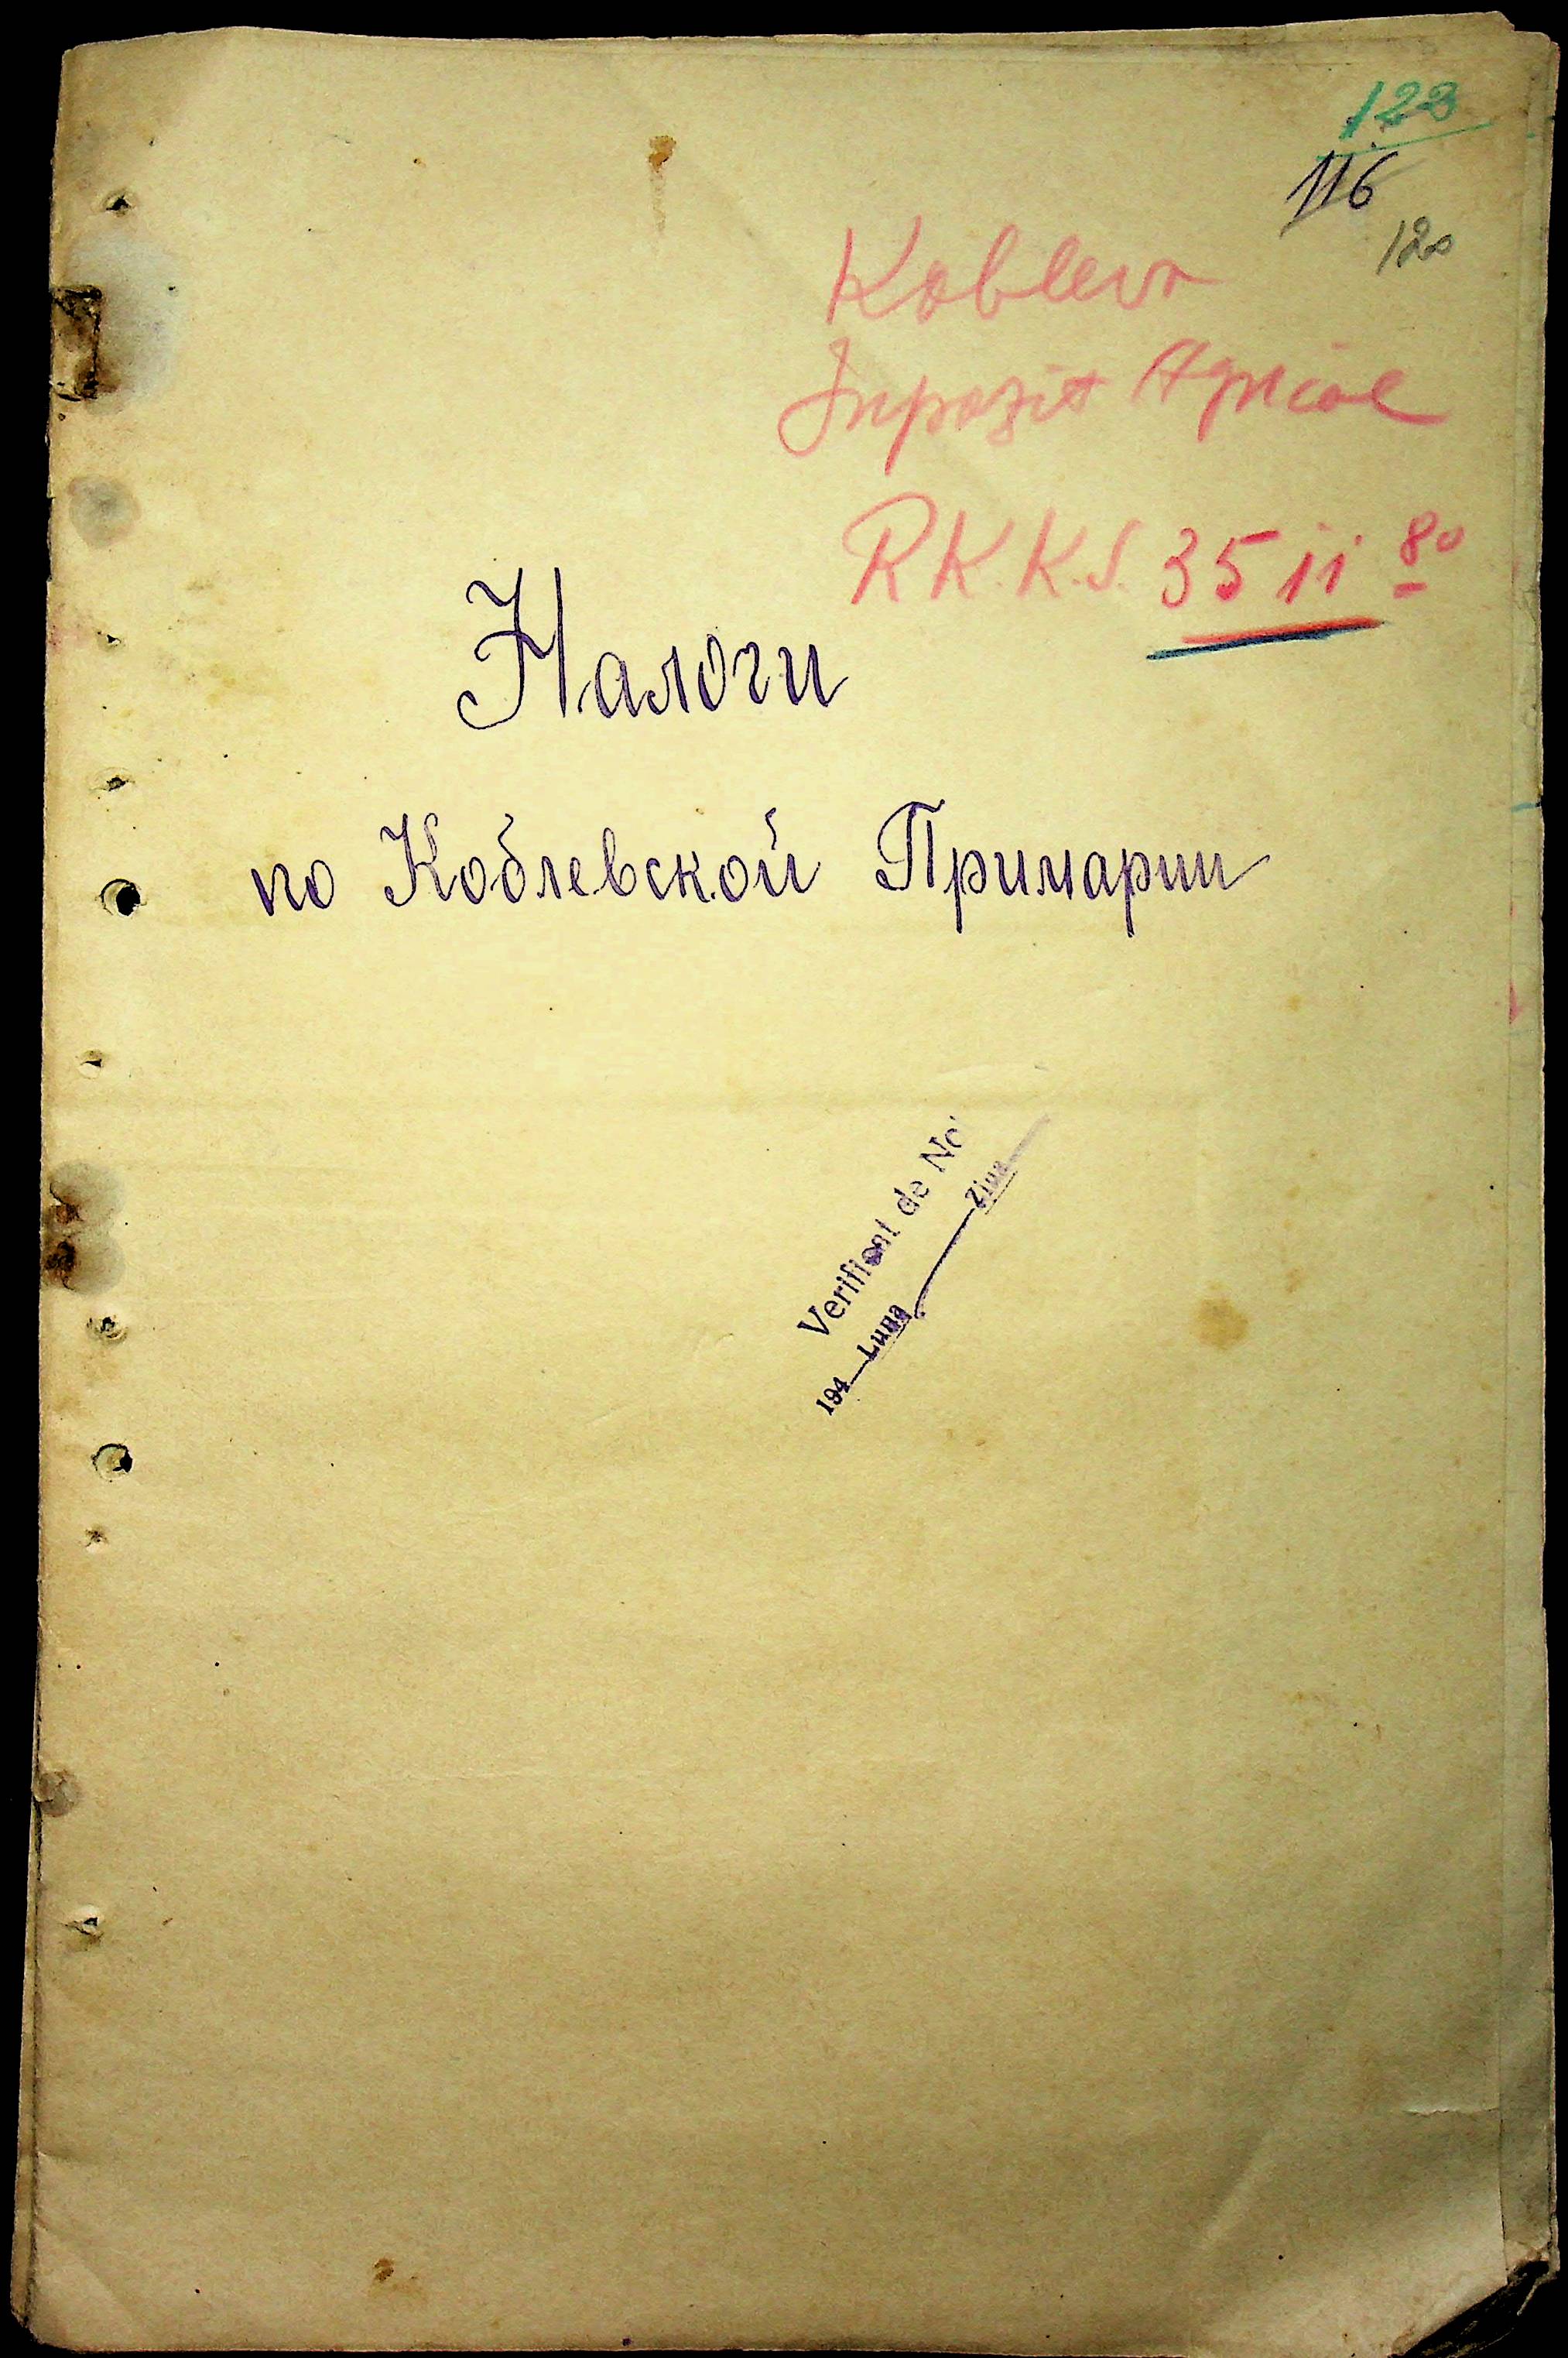 123
116
120
Koblevo
Impozit Agricol
RK.K.S. 3511 80
Налоги
по Коблевской Примарии
Verificat de No
194 Luna Ziua